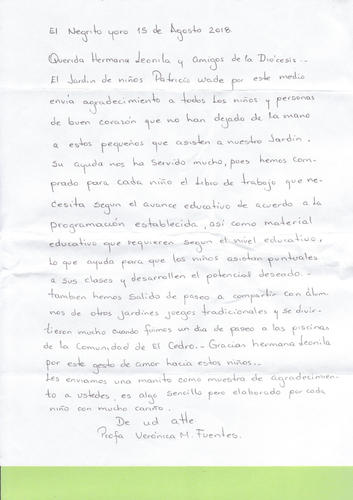 El Negrito yoro 15 de Agosto 2018.
Querida Hermana Leonila y Amigos de la Diócesis..
El Jardin de niños Patricia Wade por este medio
envia agradecimiento a todos los niños y personas
de buen corazón que no han dejado de la mano
a estos pequeños que asisten a nuestro Jardin.
Su ayuda nos ha servido mucho, pues hemos com-
prado para cada niño el libro de trabajo que ne-
cesita segun el avance educativo de acuerdo a la
programación establecida, así como material
educativo que requieren segun el nivel educativo,
Lo que ayuda para que los niños asistan puntuales
a sus clases y desarrollen el potencial deseado.-
tambien hemos salido de paseo a compartir con alum-
nos de otros jardines juegos tradicionales y se divir-
tieron mucho cuando fuimos un dia de paseo a las piscinas
de la Comunidad de El Cedro.- Gracias hermana Leonila
por este gesto de amor hacia estos niños..
Les enviamos una manito como muestra de agradecimien-
to a ustedes, es algo sencillo pero elaborado por cada
niño con mucho cariño.
De ud atte.
Profa Verónica M. Fuentes.